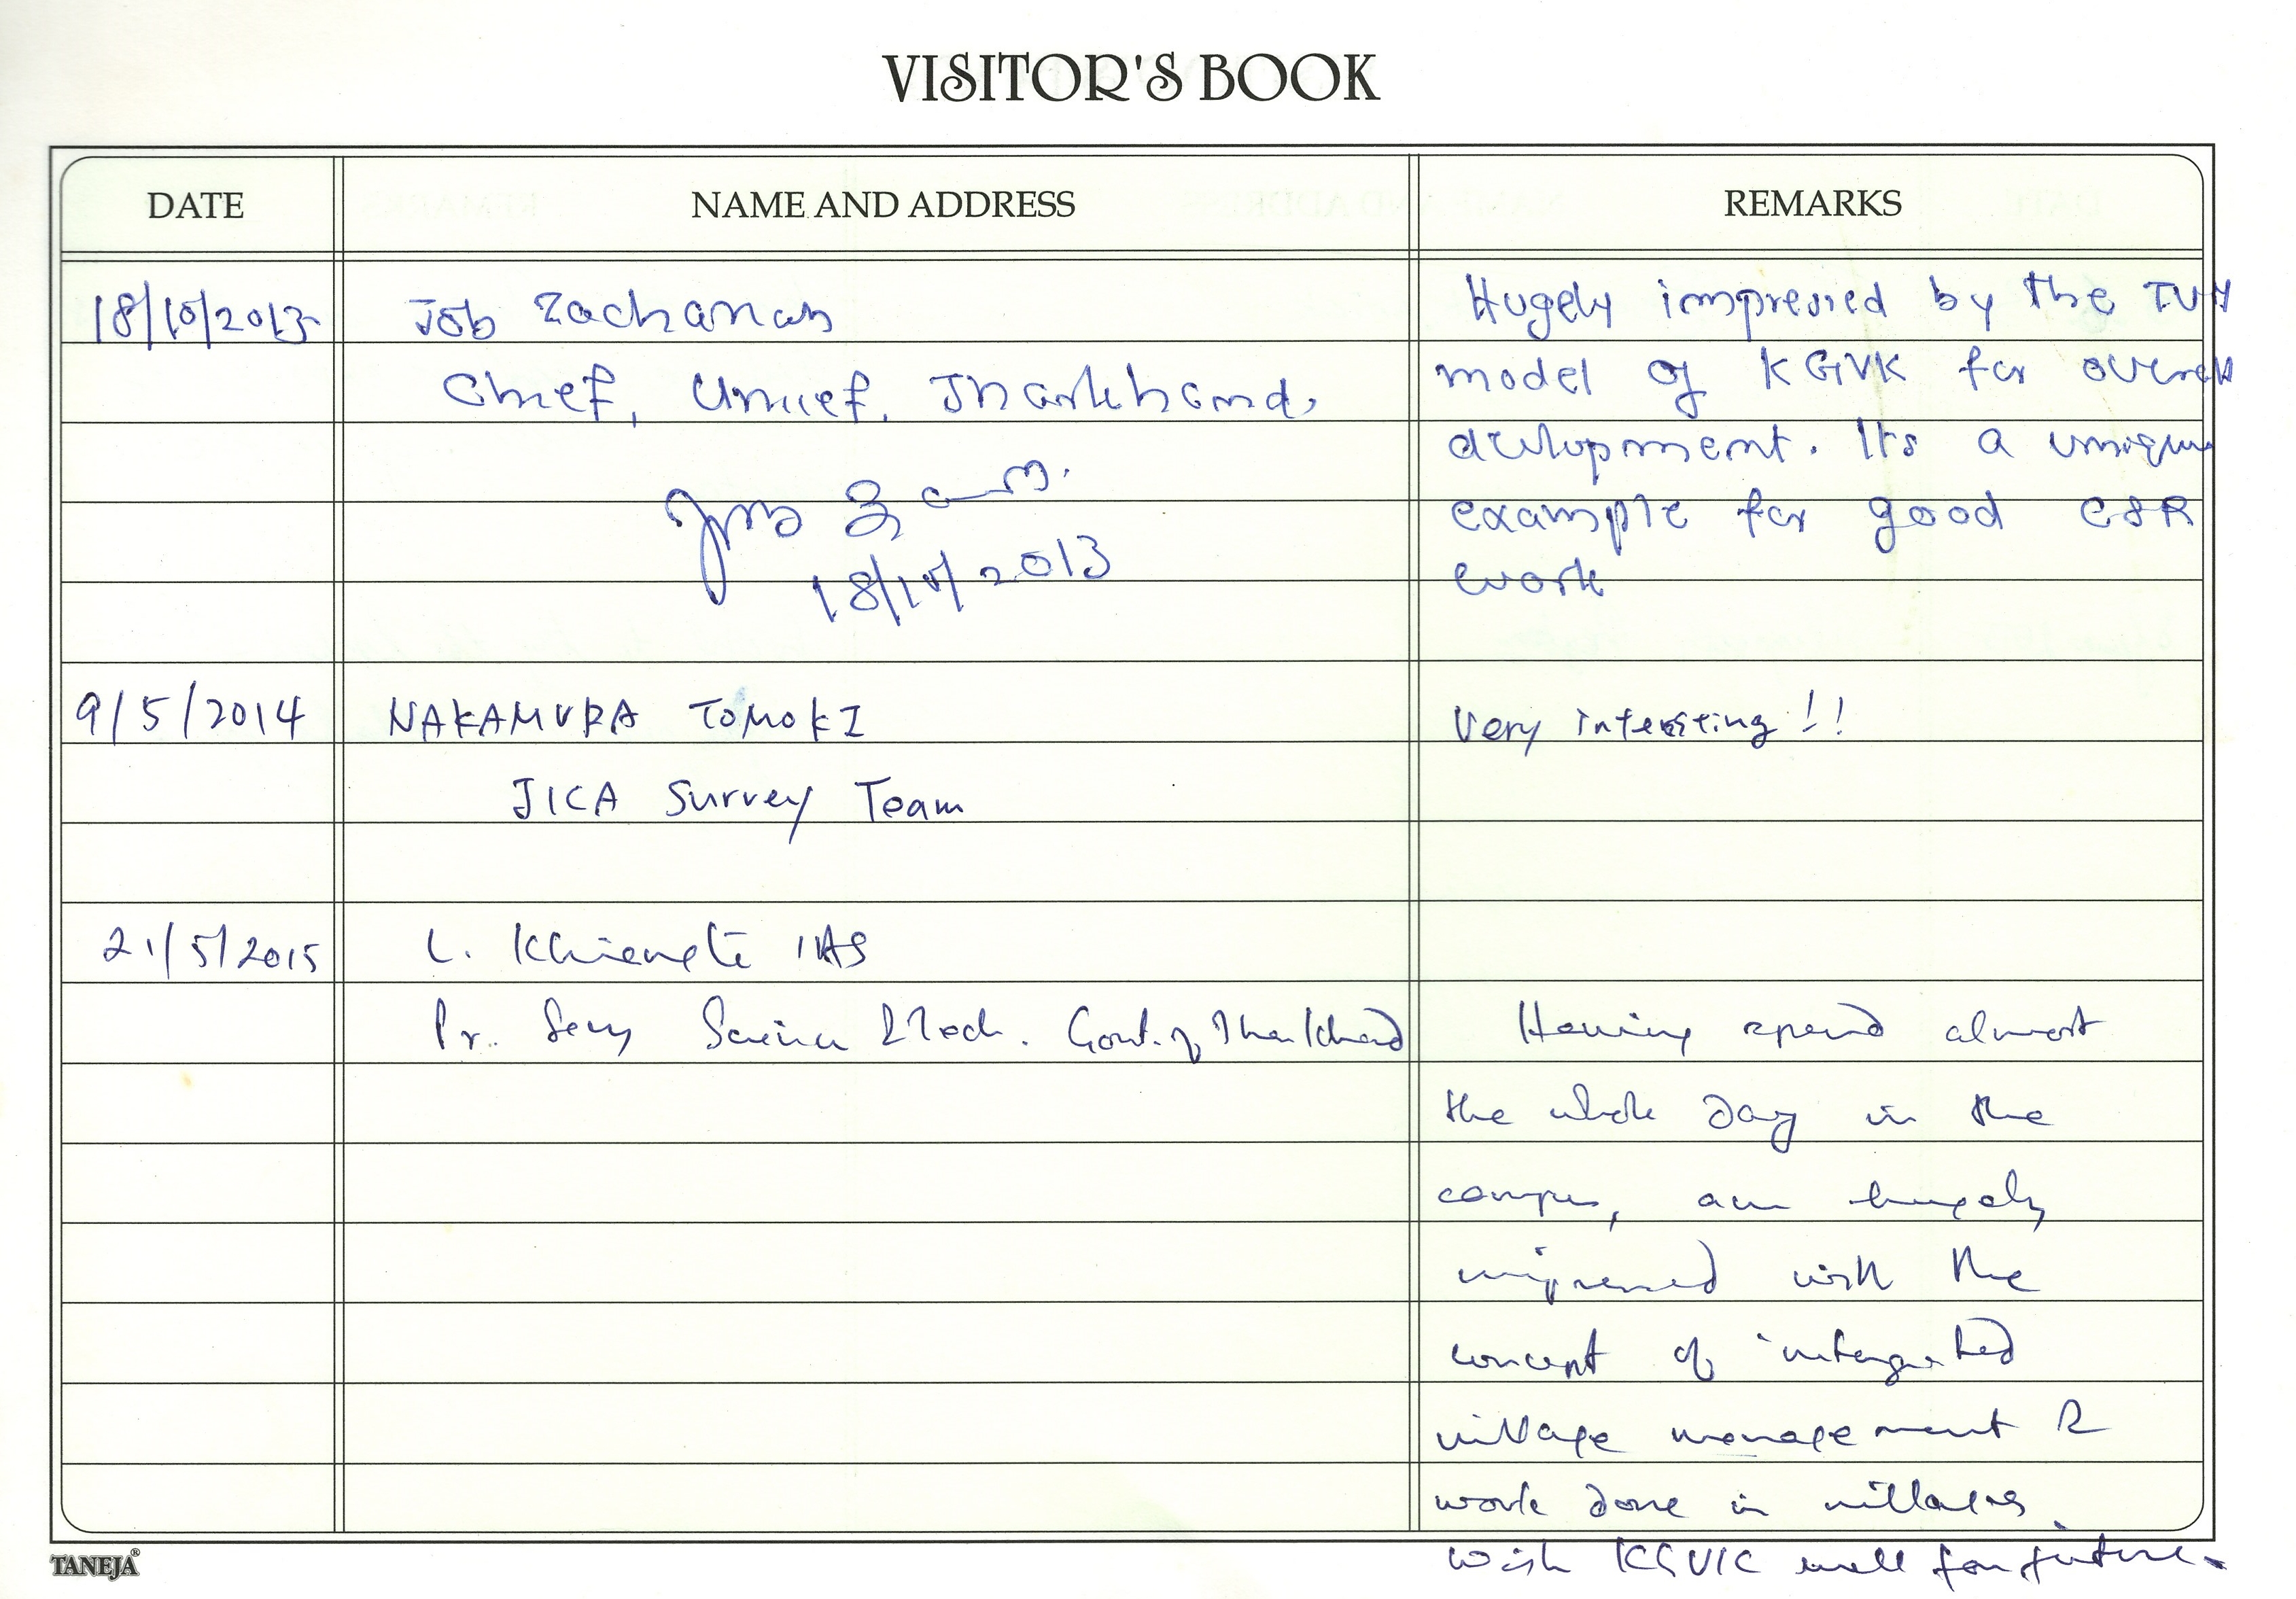 VISITOR'S BOOK
DATE NAME AND ADDRESS REMARKS
18/10/2013 Job Zachariah Hugely impressed by the TVM
Chief, Unicef, Jharkhand, model of KGVK for overall
development. Its a unique
example for good CSR
18/10/2013 work
9/5/2014 NAKAMURA TOMOKI Very interesting !!
JICA Survey Team
21/5/2015 L. Khiangte IAS
Pr. Secy Science & Tech. Govt. of Jharkhand Having spend almost
the whole day in the
campus, am hugely
impressed with the
concept of integrated
village management &
work done in villages
wish KGVK well for future.
TANEJA®